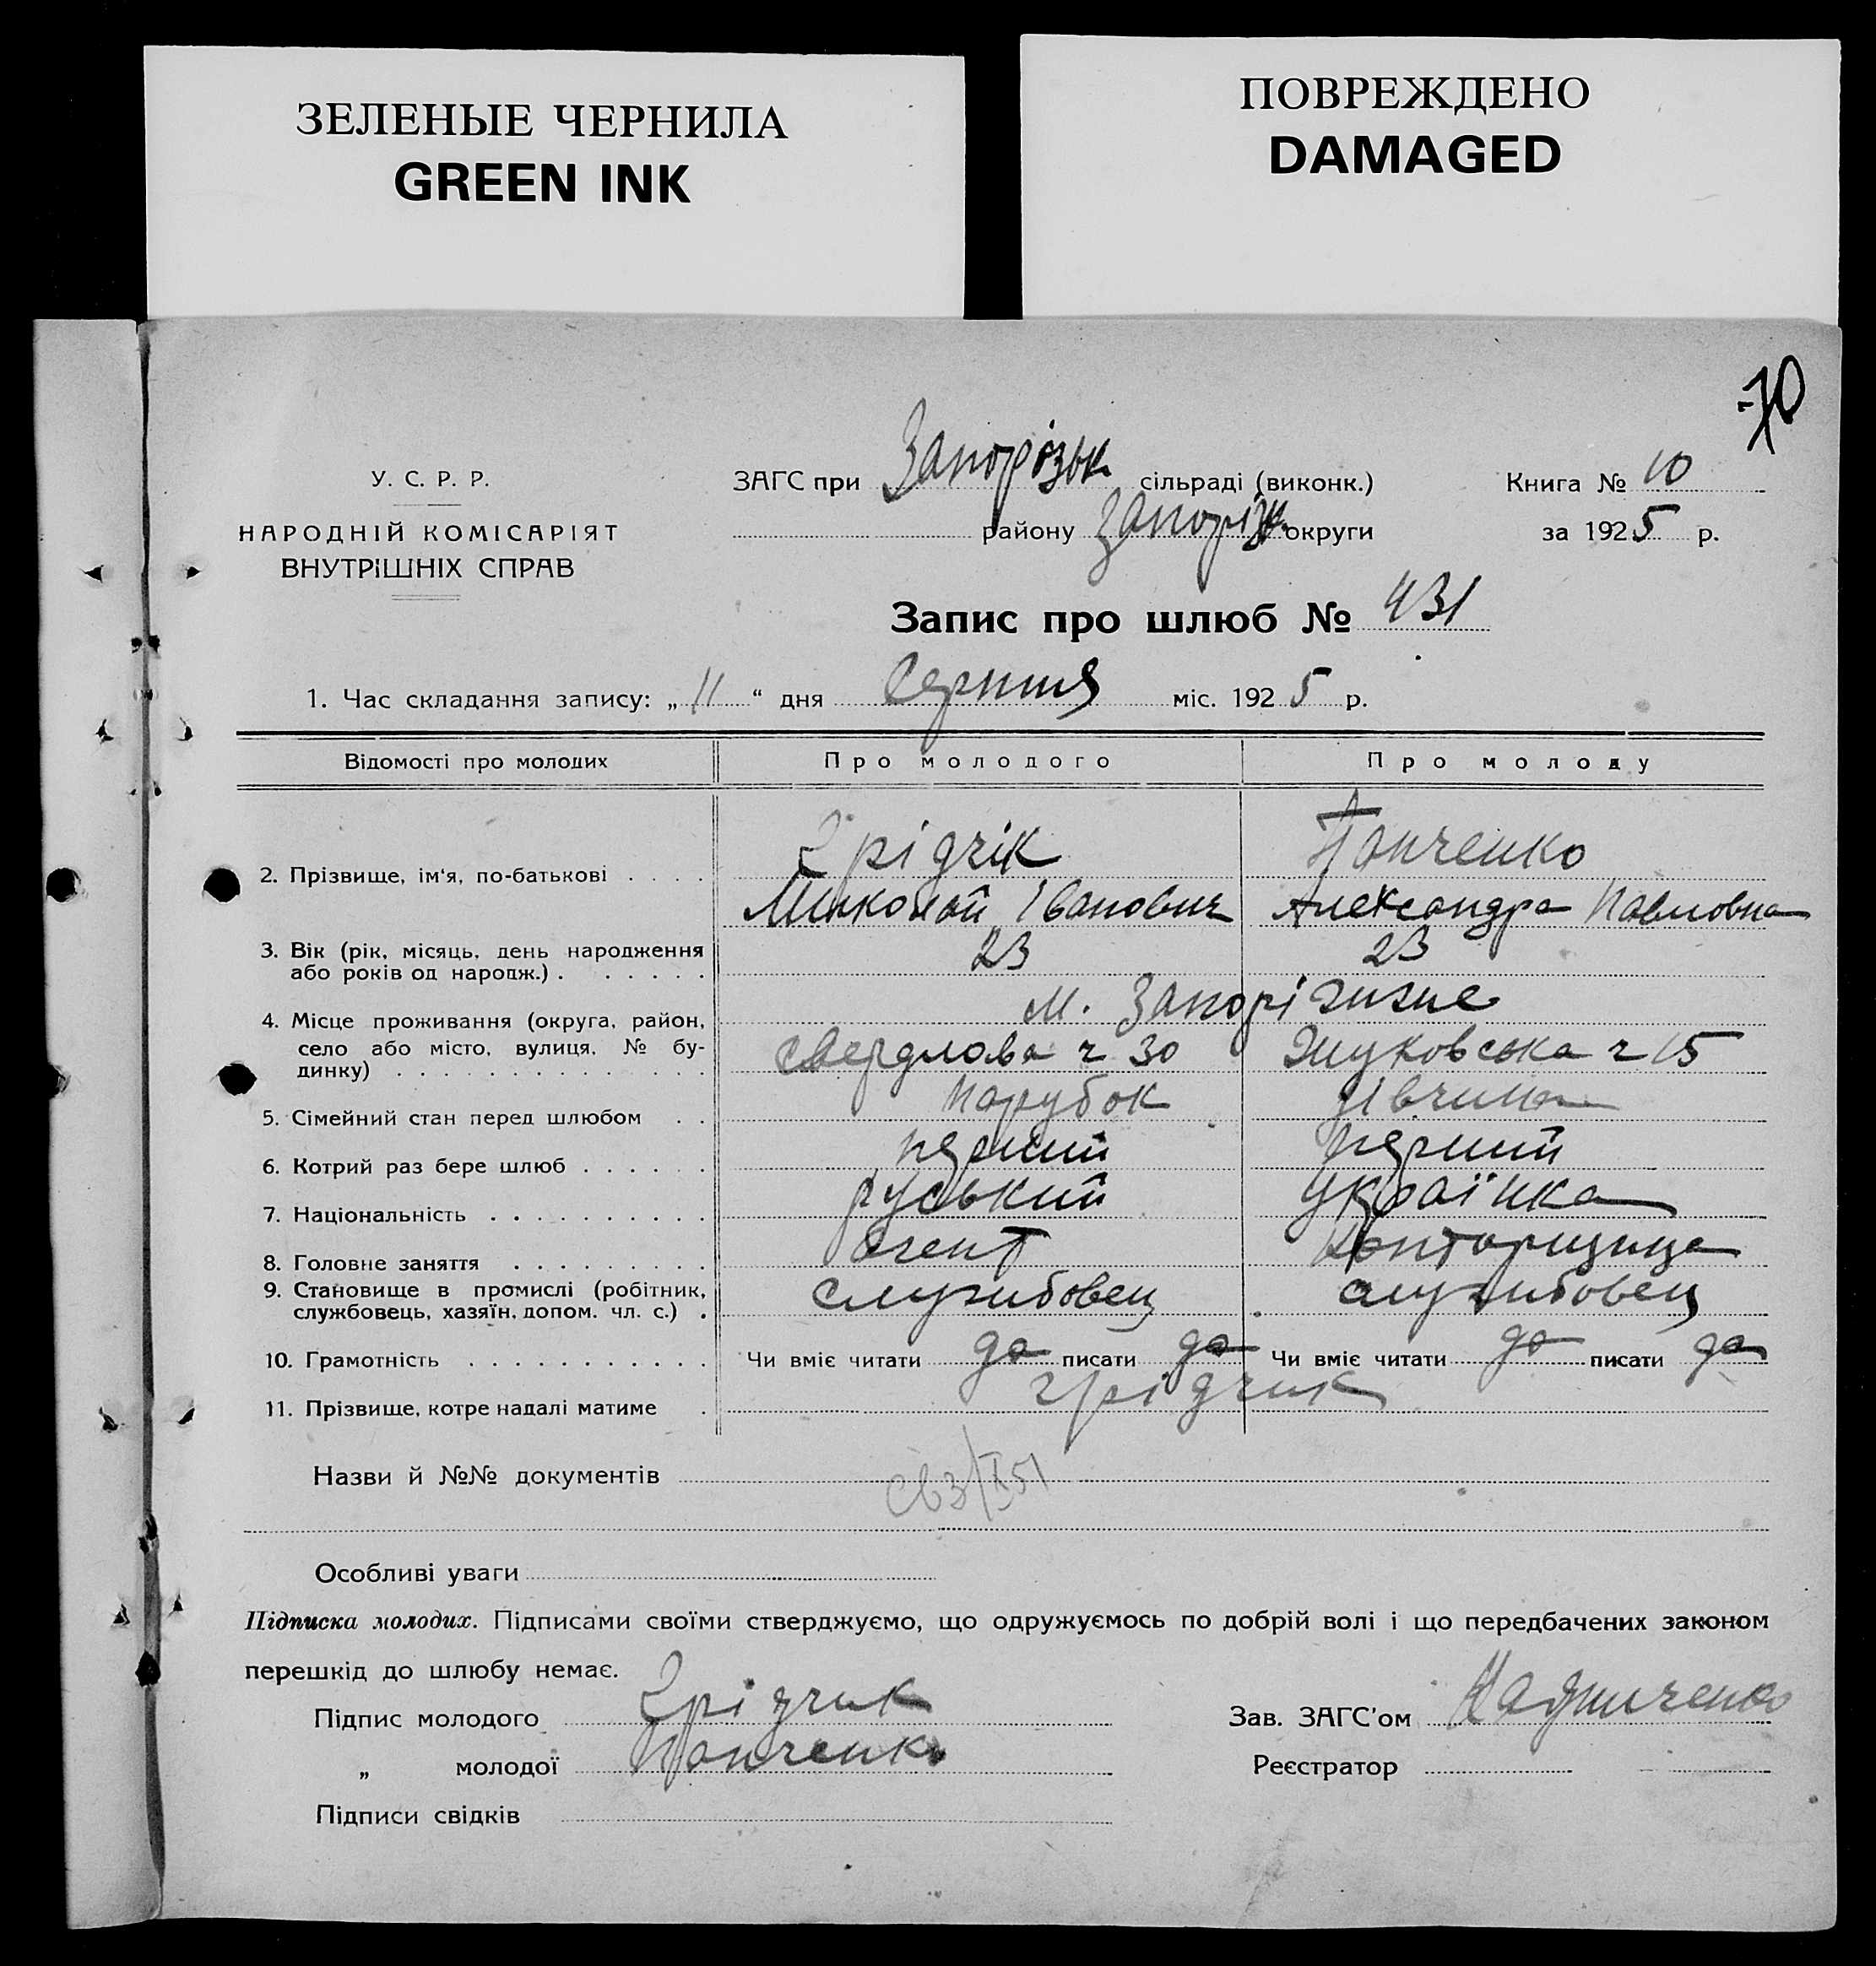 ЗЕЛЕНЫЕ ЧЕРНИЛА
GREEN INK
ПОВРЕЖДЕНО
DAMAGED
70
У. С. Р. Р.
НАРОДНІЙ КОМІСАРІЯТ
ВНУТРІШНІХ СПРАВ
ЗАГС при Запорізьк сільраді (виконк.)
району Запоріж. округи
Книга № 10
за 1925 р.
Запис про шлюб № 431
1. Час складання запису: „ 11 “ дня Серпня міс. 1925 р.
Відомості про молодих Про молодого Про молоду
2. Прізвище, ім'я, по-батькові . . . . Грідчік Панченко
Миколай Іванович Александра Павловна
3. Вік (рік, місяць, день народження
або років од народж.) . . . . . . 23 23
м. Запоріжже
4. Місце проживання (округа, район,
село або місто, вулиця, № бу-
динку) . . . . . . . . . . . . . . Свердлова ч 30 Жуковська ч 15
5. Сімейний стан перед шлюбом . . парубок дівчина
6. Котрий раз бере шлюб . . . . . . перший перший
7. Національність . . . . . . . . . . руський Українка
8. Головне заняття . . . . . . . . . агент Конторщица
9. Становище в промислі (робітник,
службовець, хазяїн, допом. чл. с.) . службовец службовец
10. Грамотність . . . . . . . . . . . Чи вміє читати да писати да Чи вміє читати да писати да
11. Прізвище, котре надалі матиме . Грідчик
Назви й №№ документів
Особливі уваги
Підписка молодих. Підписами своїми стверджуємо, що одружуємось по добрій волі і що передбачених законом
перешкід до шлюбу немає.
Підпис молодого Грідчик
„ молодої Панченко
Підписи свідків
Зав. ЗАГС'ом
Реєстратор